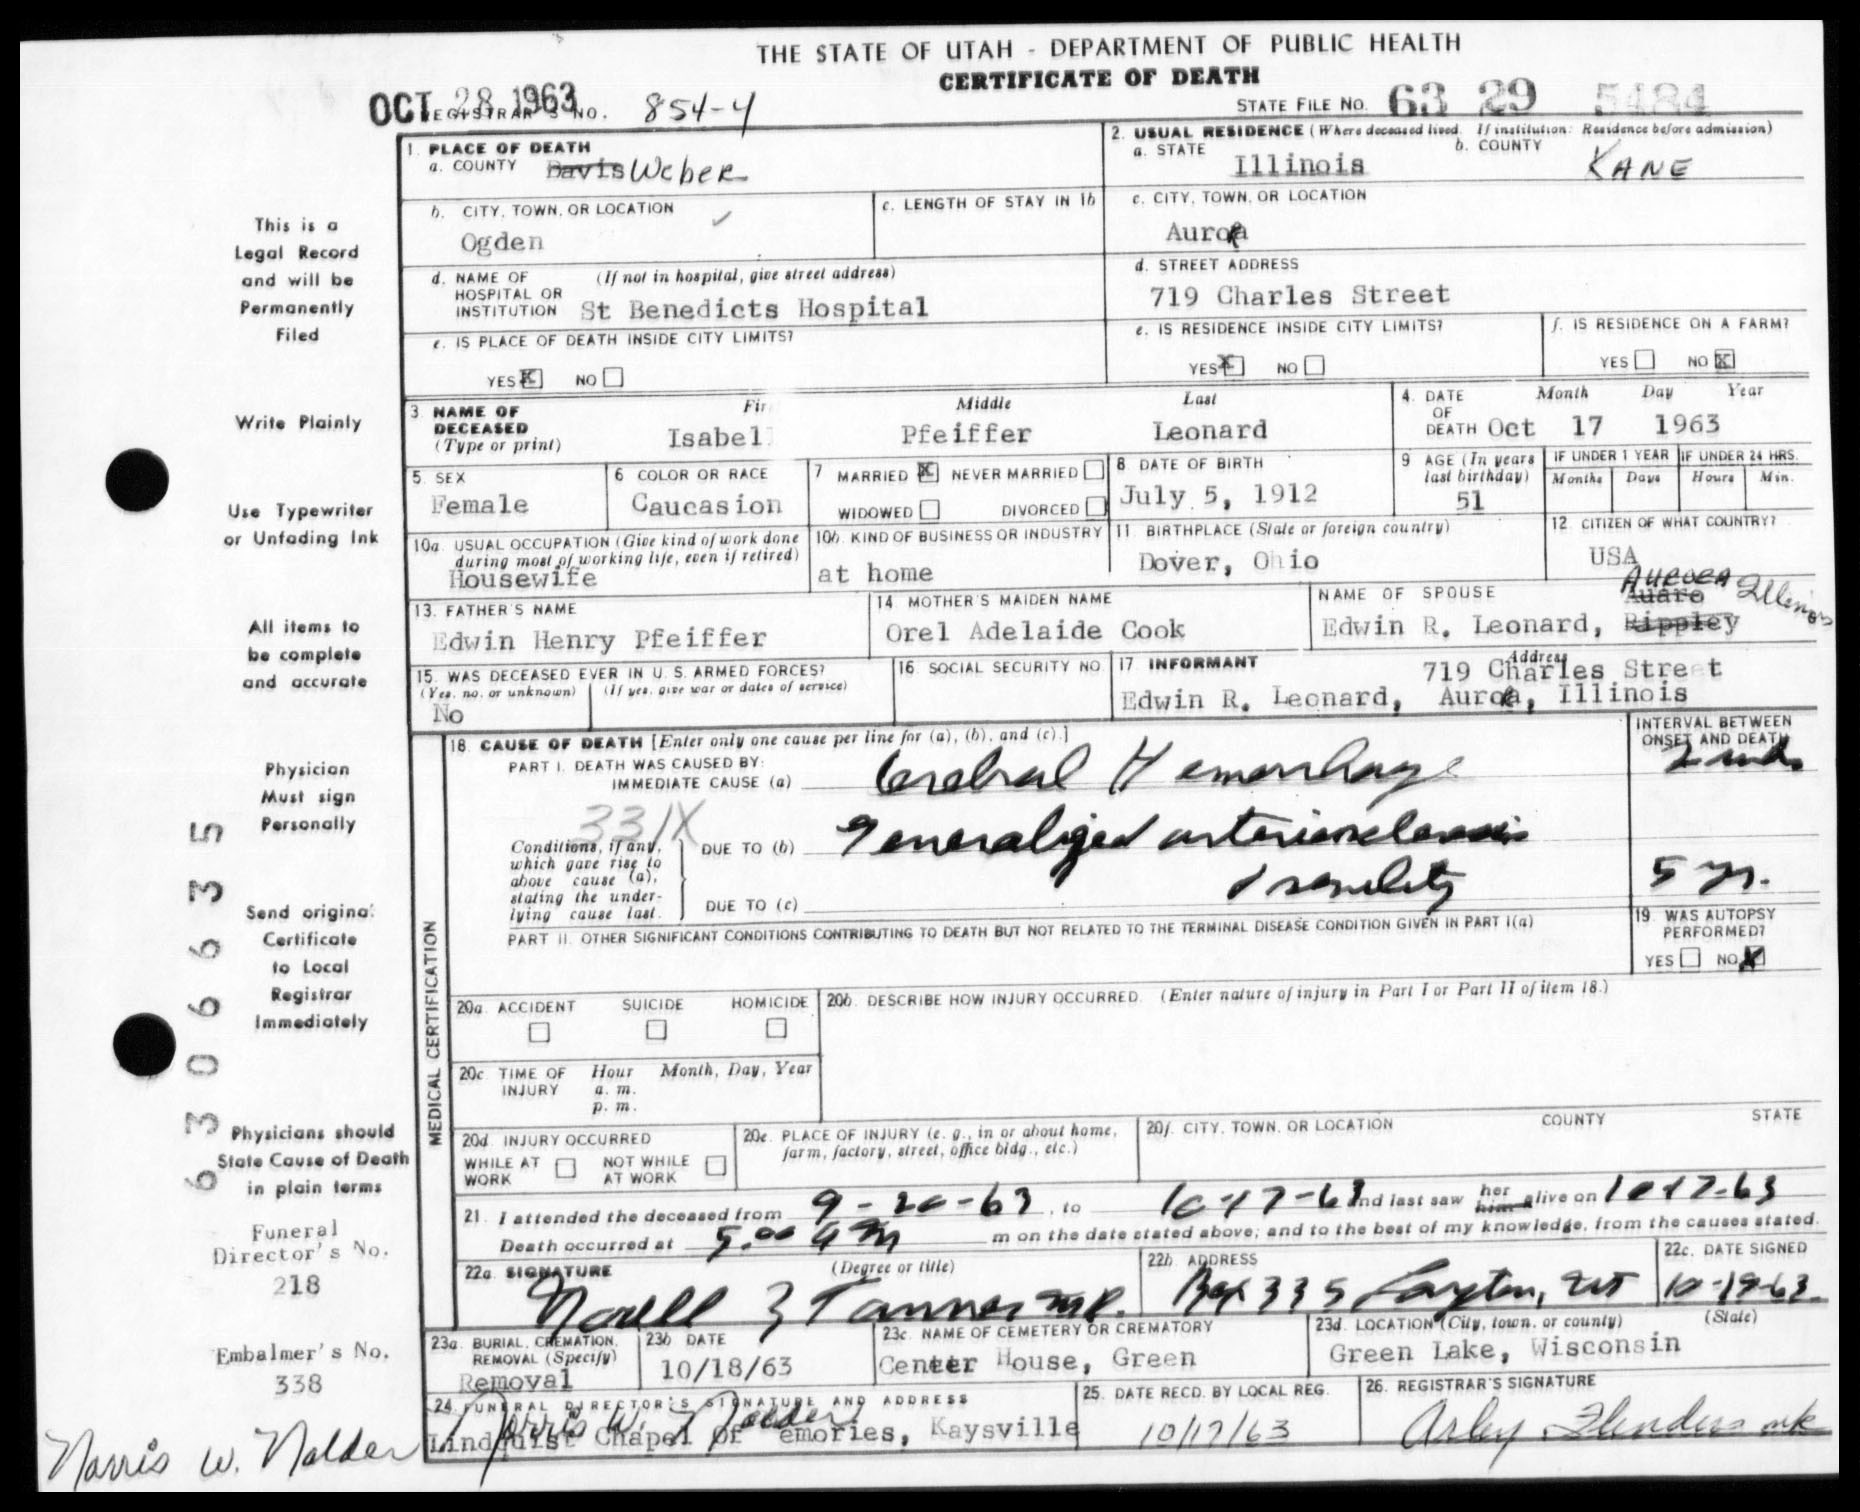 THE STATE OF UTAH - DEPARTMENT OF PUBLIC HEALTH
CERTIFICATE OF DEATH
OCT 28 1963
REGISTRAR'S NO. 854-4
STATE FILE NO. 63 29 5484
1. PLACE OF DEATH
a. COUNTY Davis Weber
2. USUAL RESIDENCE (Where deceased lived. If institution: Residence before admission)
a. STATE Illinois b. COUNTY KANE
b. CITY, TOWN, OR LOCATION
Ogden
c. LENGTH OF STAY IN 1b
c. CITY, TOWN, OR LOCATION
Aurora
d. NAME OF HOSPITAL OR INSTITUTION (If not in hospital, give street address)
St Benedicts Hospital
d. STREET ADDRESS
719 Charles Street
e. IS PLACE OF DEATH INSIDE CITY LIMITS?
YES X NO
e. IS RESIDENCE INSIDE CITY LIMITS?
YES X NO
f. IS RESIDENCE ON A FARM?
YES NO X
3. NAME OF DECEASED (Type or print)
First Middle Last
Isabel Pfeiffer Leonard
4. DATE OF DEATH Month Day Year
Oct 17 1963
5. SEX
Female
6 COLOR OR RACE
Caucasion
7 MARRIED X NEVER MARRIED
WIDOWED DIVORCED
8 DATE OF BIRTH
July 5, 1912
9 AGE (In years last birthday)
51
IF UNDER 1 YEAR IF UNDER 24 HRS.
Months Days Hours Min.
10a. USUAL OCCUPATION (Give kind of work done during most of working life, even if retired)
Housewife
10b. KIND OF BUSINESS OR INDUSTRY
at home
11. BIRTHPLACE (State or foreign country)
Dover, Ohio
12. CITIZEN OF WHAT COUNTRY?
USA
13. FATHER'S NAME
Edwin Henry Pfeiffer
14 MOTHER'S MAIDEN NAME
Orel Adelaide Cook
NAME OF SPOUSE
AURORA Illinois
Auaro
Edwin R. Leonard, Rippley
15. WAS DECEASED EVER IN U. S. ARMED FORCES?
(Yes, no, or unknown) (If yes, give war or dates of service)
No
16. SOCIAL SECURITY NO.
17. INFORMANT Address
719 Charles Street
Edwin R. Leonard, Aurora, Illinois
18. CAUSE OF DEATH [Enter only one cause per line for (a), (b), and (c).]
INTERVAL BETWEEN ONSET AND DEATH
PART I. DEATH WAS CAUSED BY:
IMMEDIATE CAUSE (a) Cerebral Hemorrhage
331X
Conditions, if any, which gave rise to above cause (a), stating the underlying cause last.
DUE TO (b) Generalized arteriosclerosis
& senility 5 yr.
DUE TO (c)
PART II. OTHER SIGNIFICANT CONDITIONS CONTRIBUTING TO DEATH BUT NOT RELATED TO THE TERMINAL DISEASE CONDITION GIVEN IN PART I(a)
19. WAS AUTOPSY PERFORMED?
YES NO X
MEDICAL CERTIFICATION
20a. ACCIDENT SUICIDE HOMICIDE
20b. DESCRIBE HOW INJURY OCCURRED. (Enter nature of injury in Part I or Part II of item 18.)
20c TIME OF INJURY Hour Month, Day, Year
a. m.
p. m.
20d. INJURY OCCURRED
WHILE AT WORK NOT WHILE AT WORK
20e. PLACE OF INJURY (e. g., in or about home, farm, factory, street, office bldg., etc.)
20f. CITY, TOWN, OR LOCATION COUNTY STATE
21. I attended the deceased from 9-20-63, to 10-17-63 and last saw her him alive on 10-17-63
Death occurred at 5:00 am m on the date stated above; and to the best of my knowledge, from the causes stated.
22a. SIGNATURE (Degree or title)
Noall Z Tanner M.D.
22b. ADDRESS
Box 335 Layton, Ut
22c. DATE SIGNED
10-19-63
23a. BURIAL, CREMATION, REMOVAL (Specify)
Removal
23b DATE
10/18/63
23c. NAME OF CEMETERY OR CREMATORY
Center House, Green
23d. LOCATION (City, town, or county) (State)
Green Lake, Wisconsin
24. FUNERAL DIRECTOR'S SIGNATURE AND ADDRESS
Norris W. Nalder
Lindquist Chapel of Memories, Kaysville
25. DATE RECD. BY LOCAL REG.
10/17/63
26. REGISTRAR'S SIGNATURE
Arley Flinders mk
This is a
Legal Record
and will be
Permanently
Filed
Write Plainly
Use Typewriter
or Unfading Ink
All items to
be complete
and accurate
Physician
Must sign
Personally
Send original
Certificate
to Local
Registrar
Immediately
Physicians should
State Cause of Death
in plain terms
Funeral
Director's No.
218
Embalmer's No.
338
Norris W. Nalder
63066335